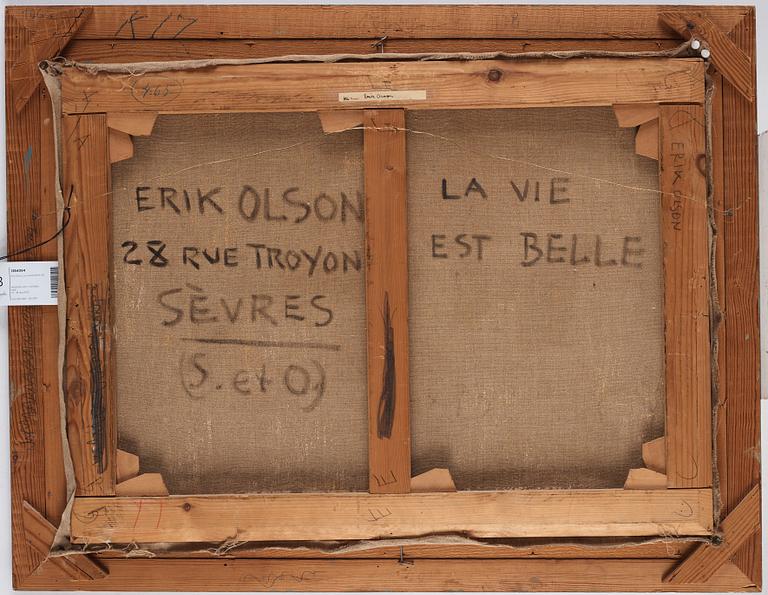 K 17
4.65
Erik Olson
ERIK OLSON
28 RUE TROYON
SÈVRES
(S. et O)
LA VIE
EST BELLE
ERIK OLSON